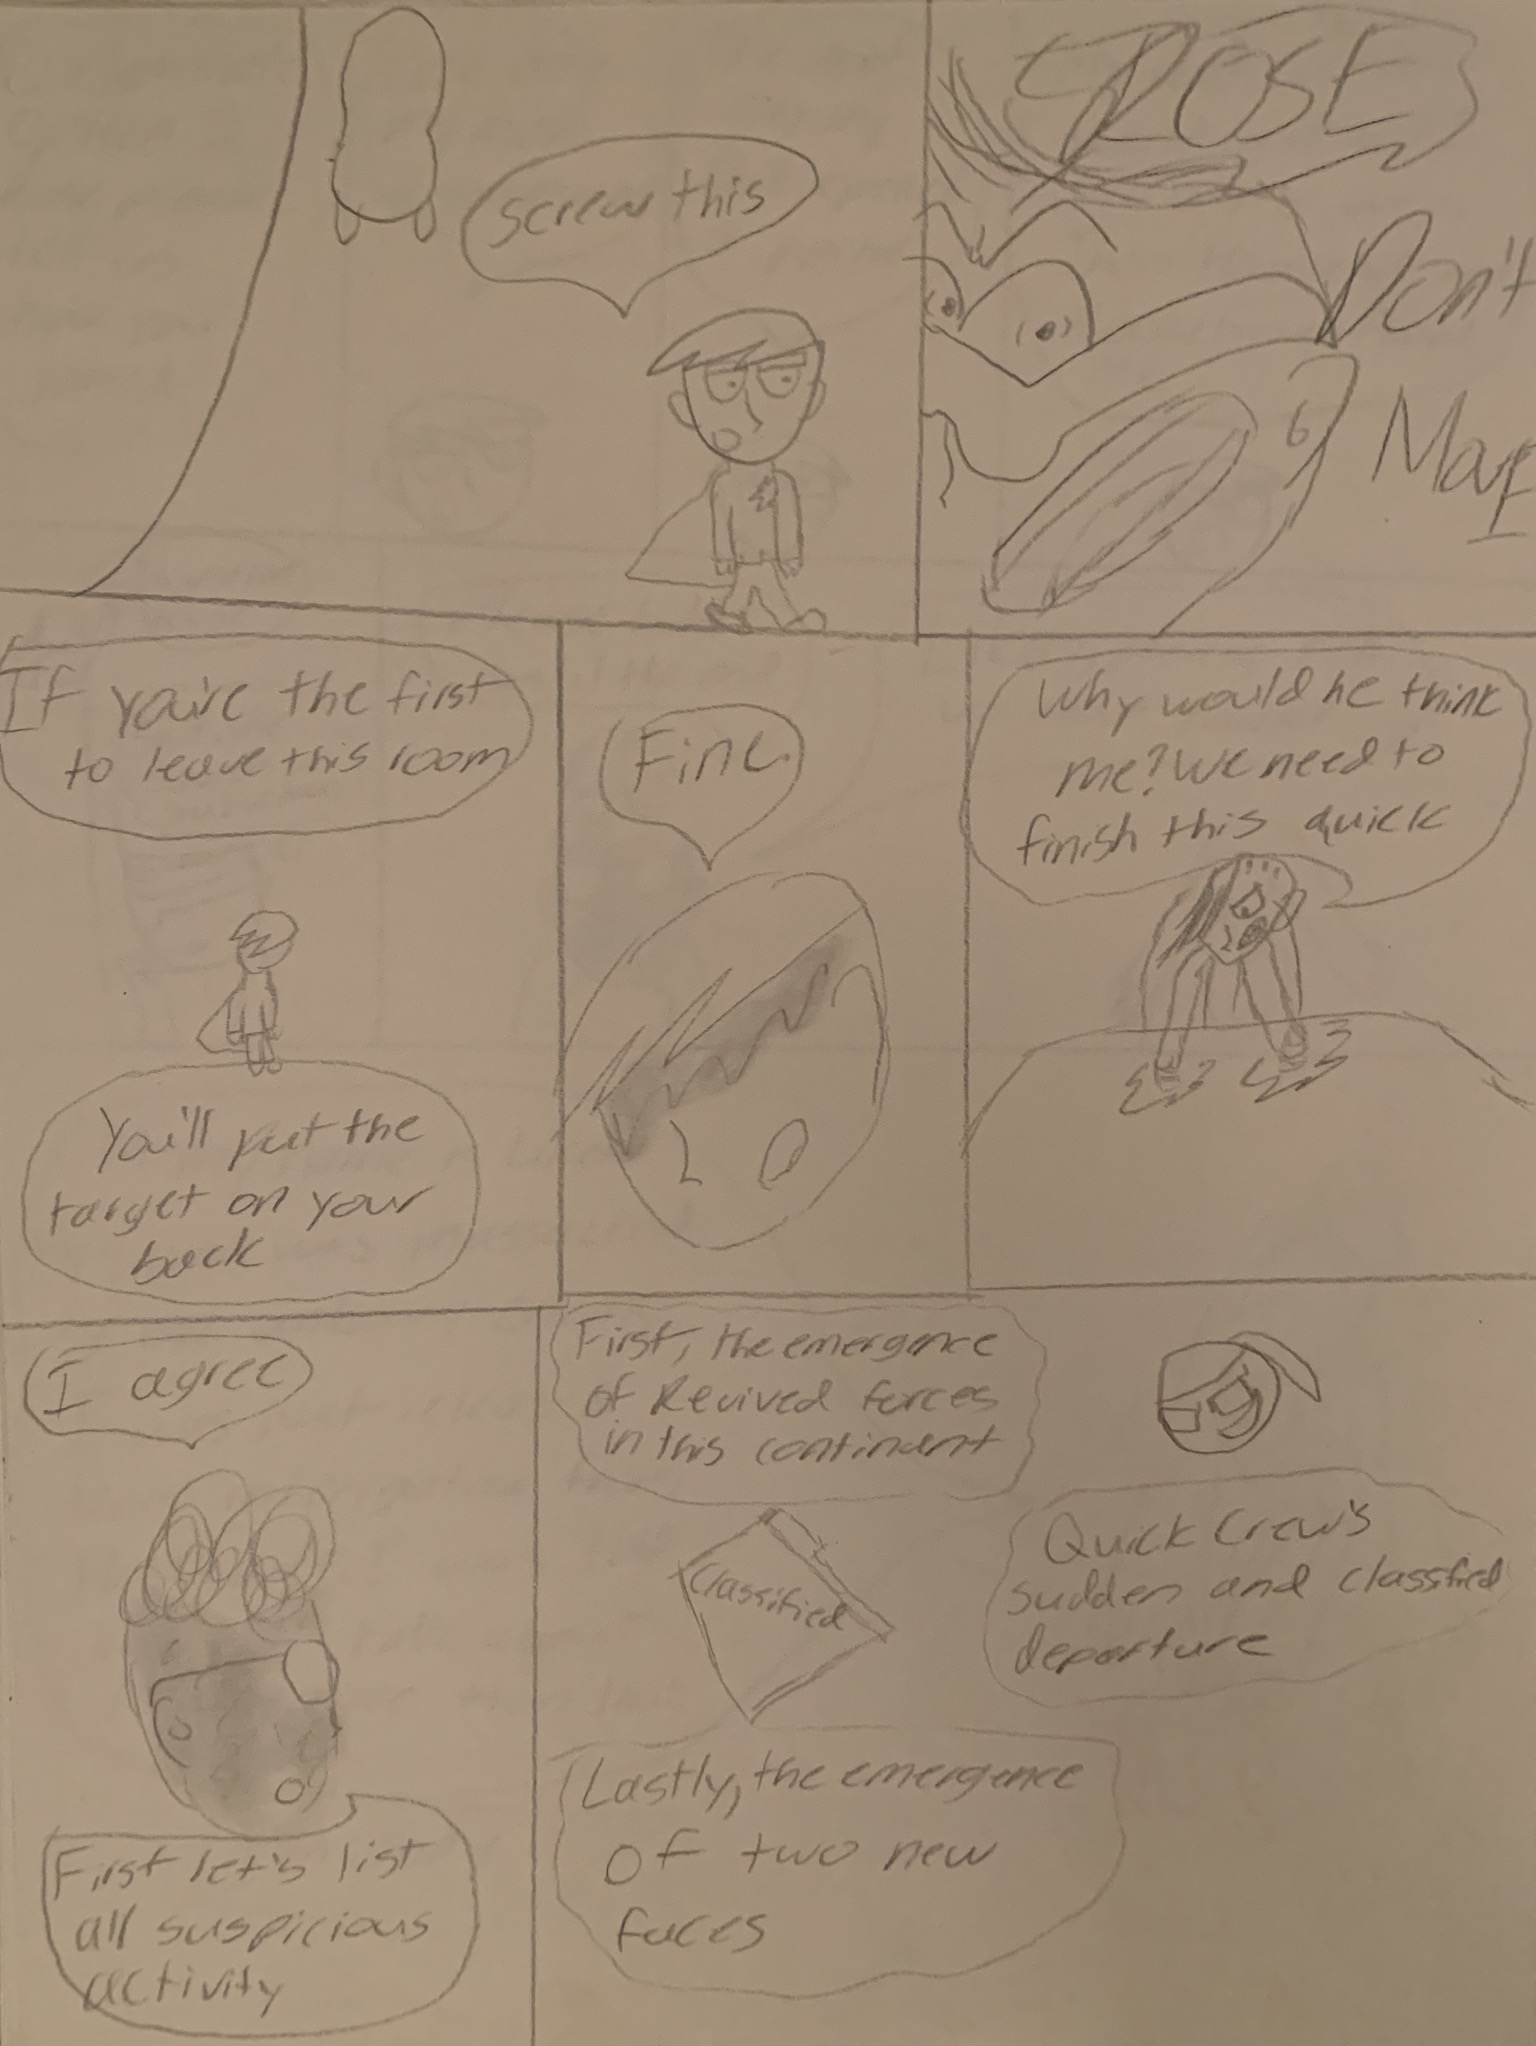 Screw this
ROSE
Don't
Move
If you're the first
to leave this room
You'll put the
target on your
back
Fine.
Why would he think
me? We need to
finish this quick
I agree
First let's list
all suspicious
activity
First, the emergence
of Revived forces
in this continent
Classified
Quick Crew's
sudden and classified
departure
Lastly, the emergence
of two new
faces